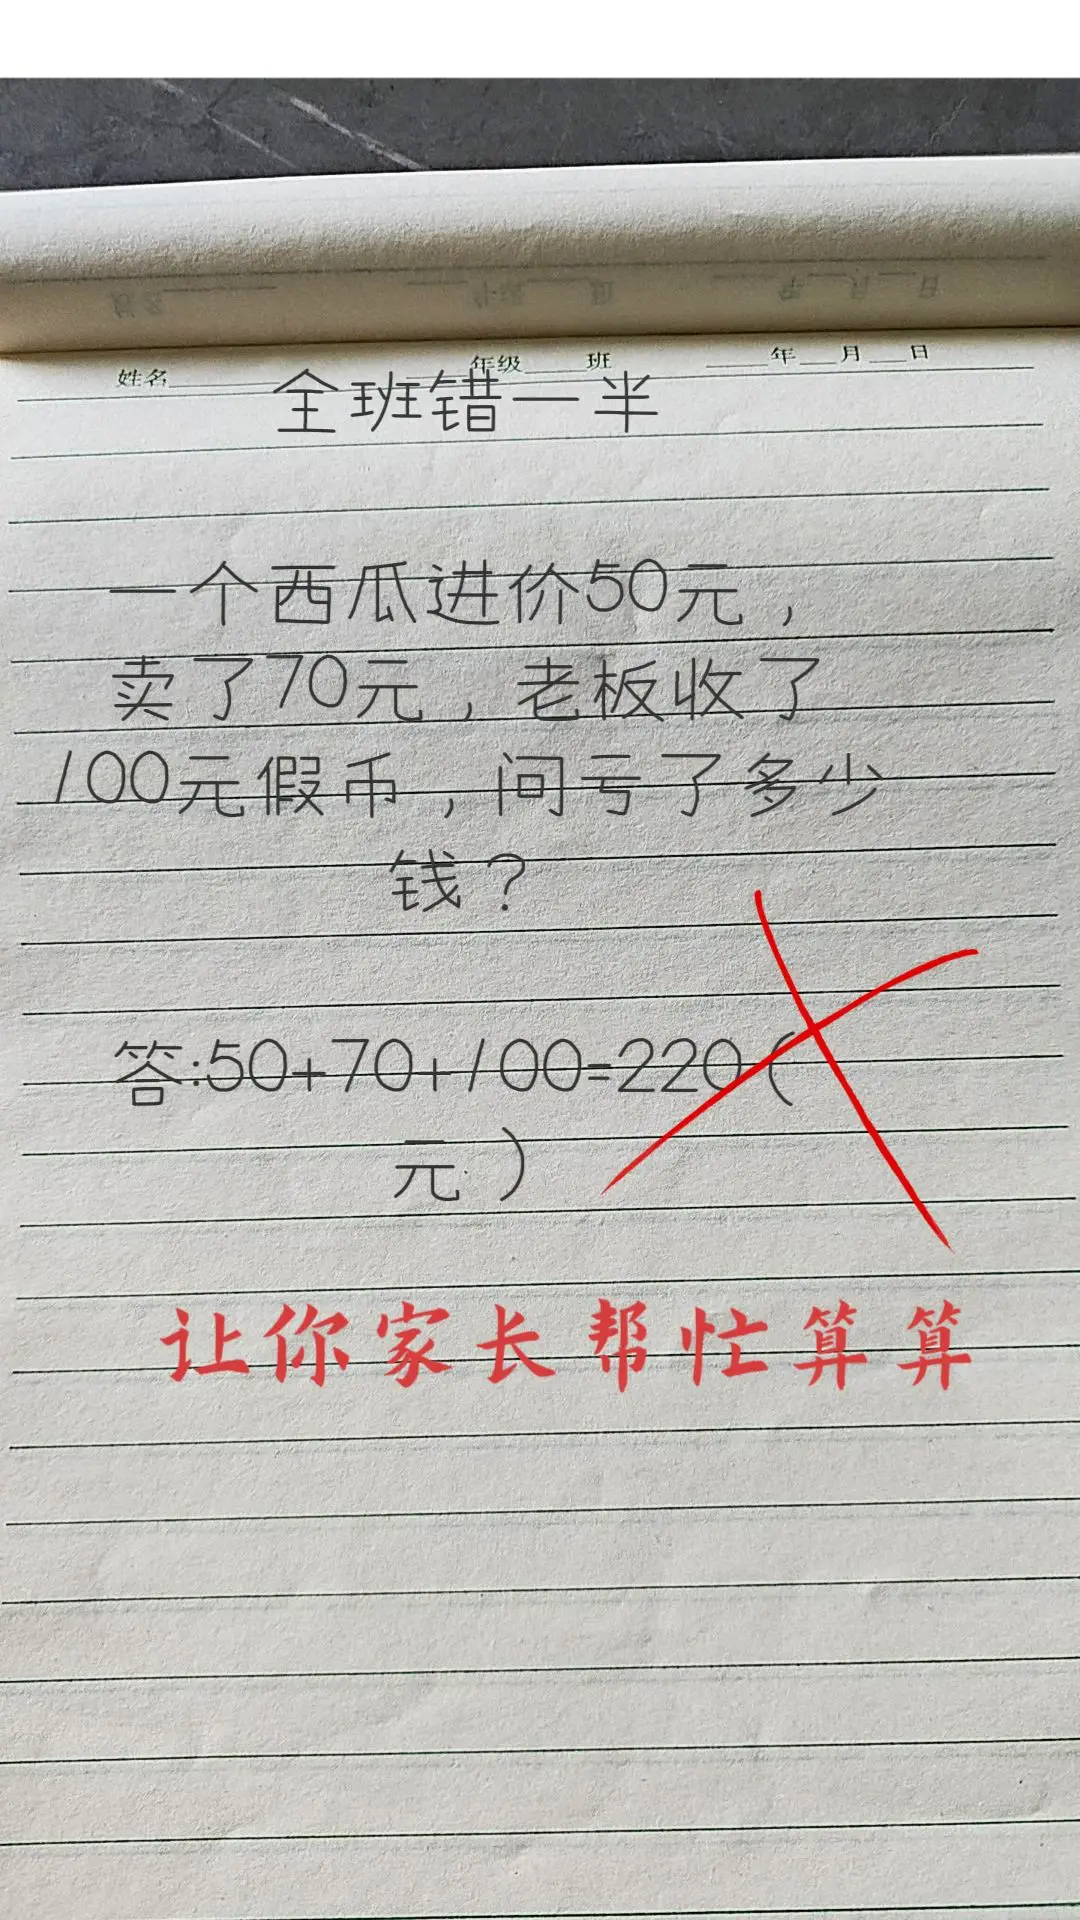 姓名 年级 班 年 月 日
全班错一半
一个西瓜进价50元，
卖了70元，老板收了
100元假币，问亏了多少
钱？
答:50+70+100=220（
元）
让你家长帮忙算算